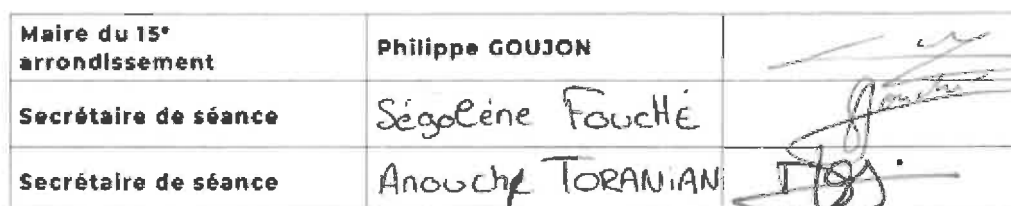 Maire du 15e
arrondissement
Philippe GOUJON
Secrétaire de séance
Ségolène FoucHÉ
Secrétaire de séance
Anouche TORANIAN